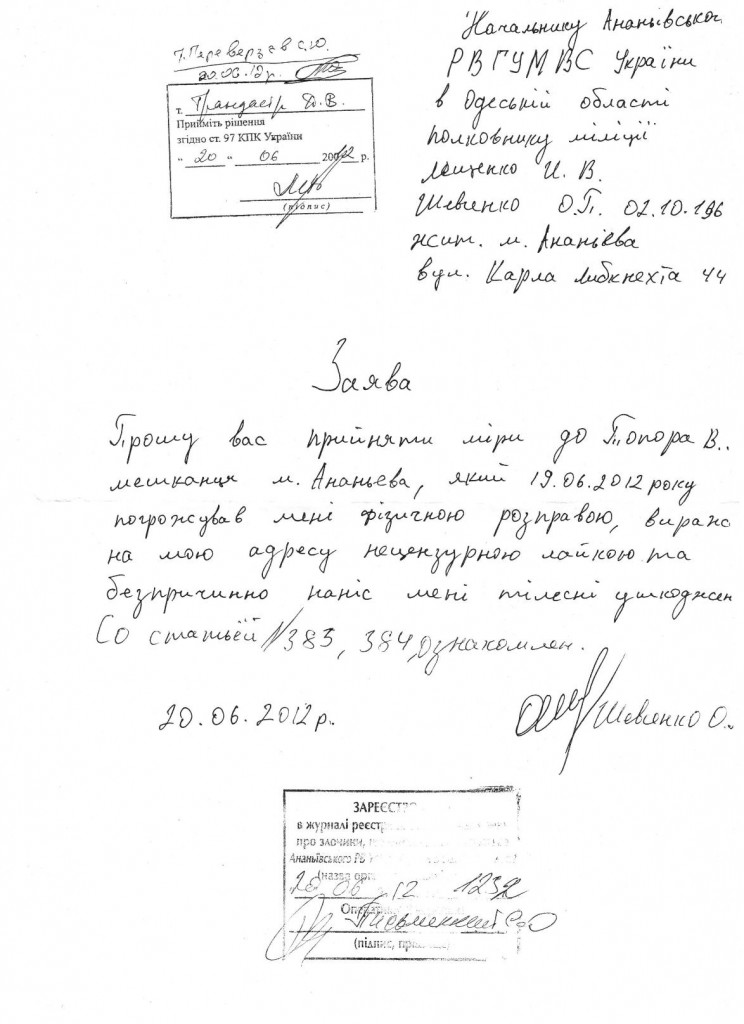 т. Переверзєв С.Ю.
20.06.12р.
т.
Прийміть рішення
згідно ст. 97 КПК України
" 20 " 06 2012 р.
(підпис)
Начальнику Ананьївськог
РВ ГУМВС України
в Одеській області
полковнику міліції
Лещенко И. В.
Шевченко О.П. 02.10.196
жит. м. Ананьєва
вул. Карла Либкнехта 44
Заява
Прошу вас прийняти міри до В..
мешканця м. Ананьева, який 19.06.2012 року
погрожував мені фізичною розправою, виражо
на мою адресу нецензурною лайкою та
безпричинно наніс мені тілесні ушкоджен
Со статьёй №383, 384, ознакомлен.
20.06.2012р.
Шевченко О..
ЗАРЕЄСТР
в журналі реєстр
про злочини,
Ананьївського РВ
(назва орг
20 06 12 1232
Опер
Письменний С.О
(підпис, пр